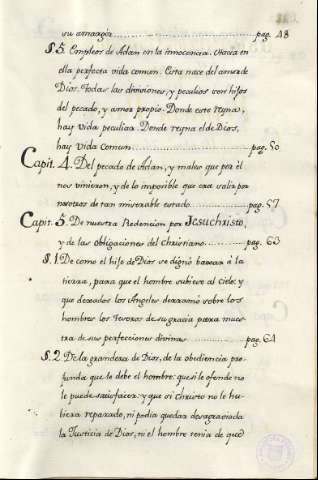 su amargia.......pag. 48
§. 5. Empleos de Adan en la innocencia. Havia en
ella perfecta vida comun. Esta nace del amor de
Dios. Todas las divisiones, y peculios son hijos
del pecado, y amor propio. Donde este reyna,
hay vida peculiar. Donde reyna el de Dios,
hay Vida comun.......pag. 50
Capit. 4. Del pecado de Adan, y males que por èl
nos vinieron, y de lo imposible que era salir por
nosotros de tan miserable estado.......pag. 57
Capit. 5. De nuestra Redencion por Jesuchristo,
y de las obligaciones del Christiano.......pag. 63
§. 1 De como el hijo de Dios se dignò baxar à la
tierra, para que el hombre subiese al cielo: y
que dexados los Angeles derramò sobre los
hombres los Tesoros de su gracia para mues-
tra de sus perfecciones divinas.......pag. 64
§. 2. De la grandeza de Dios, de la obediencia pro-
funda que le debe el hombre: que si le ofende no
le puede satisfacer: y que si Christo no le hu-
biera reparado, ni podia quedar desagraviada
la Justicia de Dios, ni el hombre tenia de que